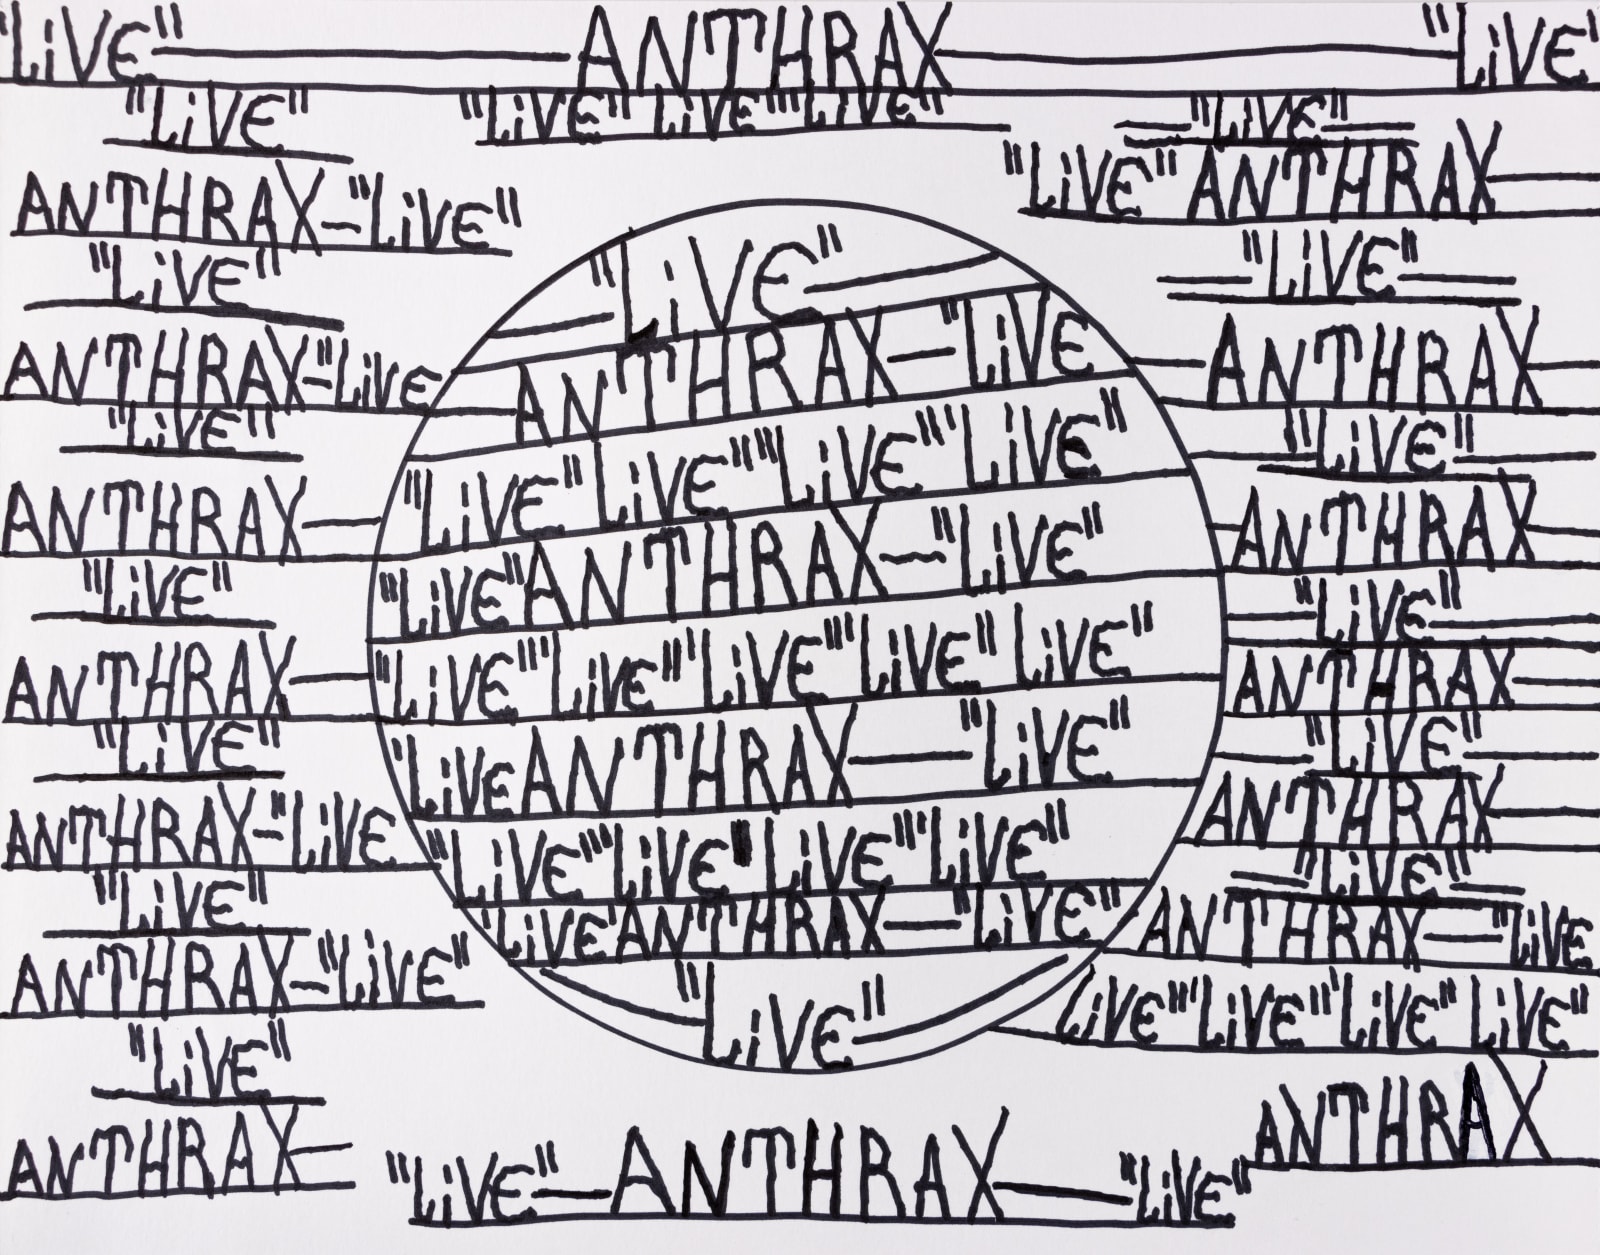 "LiVE" ANTHRAX "LiVE"
"LiVE" "LiVE" "LiVE" "LiVE" "LiVE"
"LiVE" ANTHRAX
ANTHRAX-"LiVE"
"LiVE"
"LiVE"
ANTHRAX-"LiVE
ANTHRAX
"LiVE"
"LiVE"
ANTHRAX
ANTHRAX
"LiVE"
"LiVE"
ANTHRAX
ANTHRAX
"LiVE"
"LiVE"
ANTHRAX-"LiVE
ANTHRAX
"LiVE"
"LiVE"
ANTHRAX-"LiVE"
ANTHRAX-"LiVE
"LiVE"
LiVE" "LiVE" "LiVE" LiVE"
ANTHRAX
ANTHRAX
"LiVE"
ANTHRAX-"LiVE
"LiVE" LiVE" "LiVE" "LiVE"
"LiVE" ANTHRAX-"LiVE"
"LiVE" "LiVE" "LiVE" "LiVE" LiVE"
"LiVE ANTHRAX-"LiVE"
"LiVE" "LiVE" LiVE" "LiVE"
"LiVE" ANTHRAX-"LiVE"
"LiVE"
"LiVE"-ANTHRAX-"LiVE"